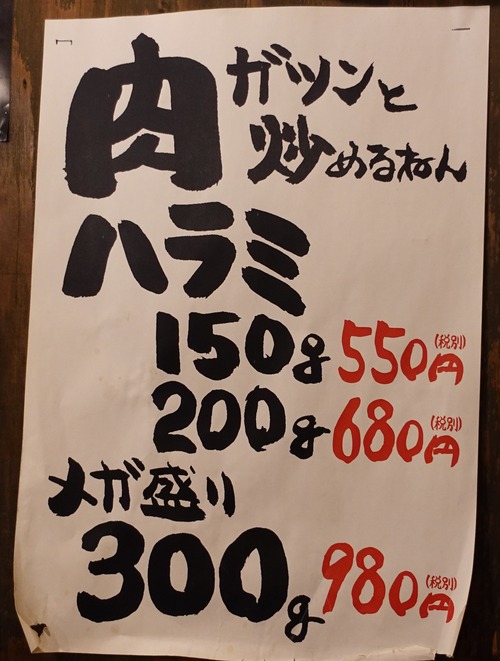 肉 ガツンと
炒めるねん
ハラミ
150g 550円(税別)
200g 680円(税別)
メガ盛り
300g 980円(税別)